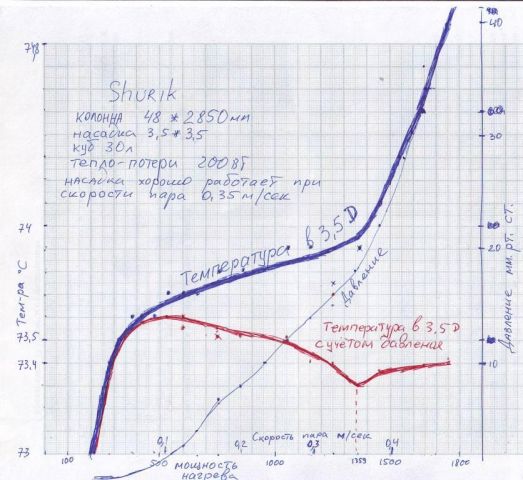 74,8
Shurik
колонна 48 * 2850мм
насадка 3,5 * 3,5
куб 30л
тепло-потери 200Вт
насадка хорошо работает при
скорости пара 0,35 м/сек
74
Температура в 3,5 D
Давление
Температура в 3,5 D
с учётом давления
Тем-ра °C
73,5
73,4
73
40
30
20
10
Давление мм.рт. ст.
0,1
0,2
Скорость пара м/сек
0,3
0,4
100
500
1000
1359
1500
1800
мощность
нагрева